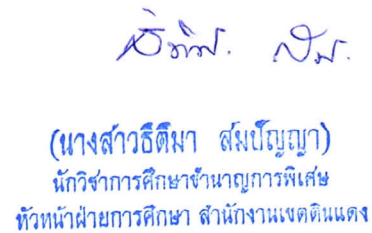 (นางสาวธิติมา สมปัญญา)
นักวิชาการศึกษาชำนาญการพิเศษ
หัวหน้าฝ่ายการศึกษา สำนักงานเขตดินแดง